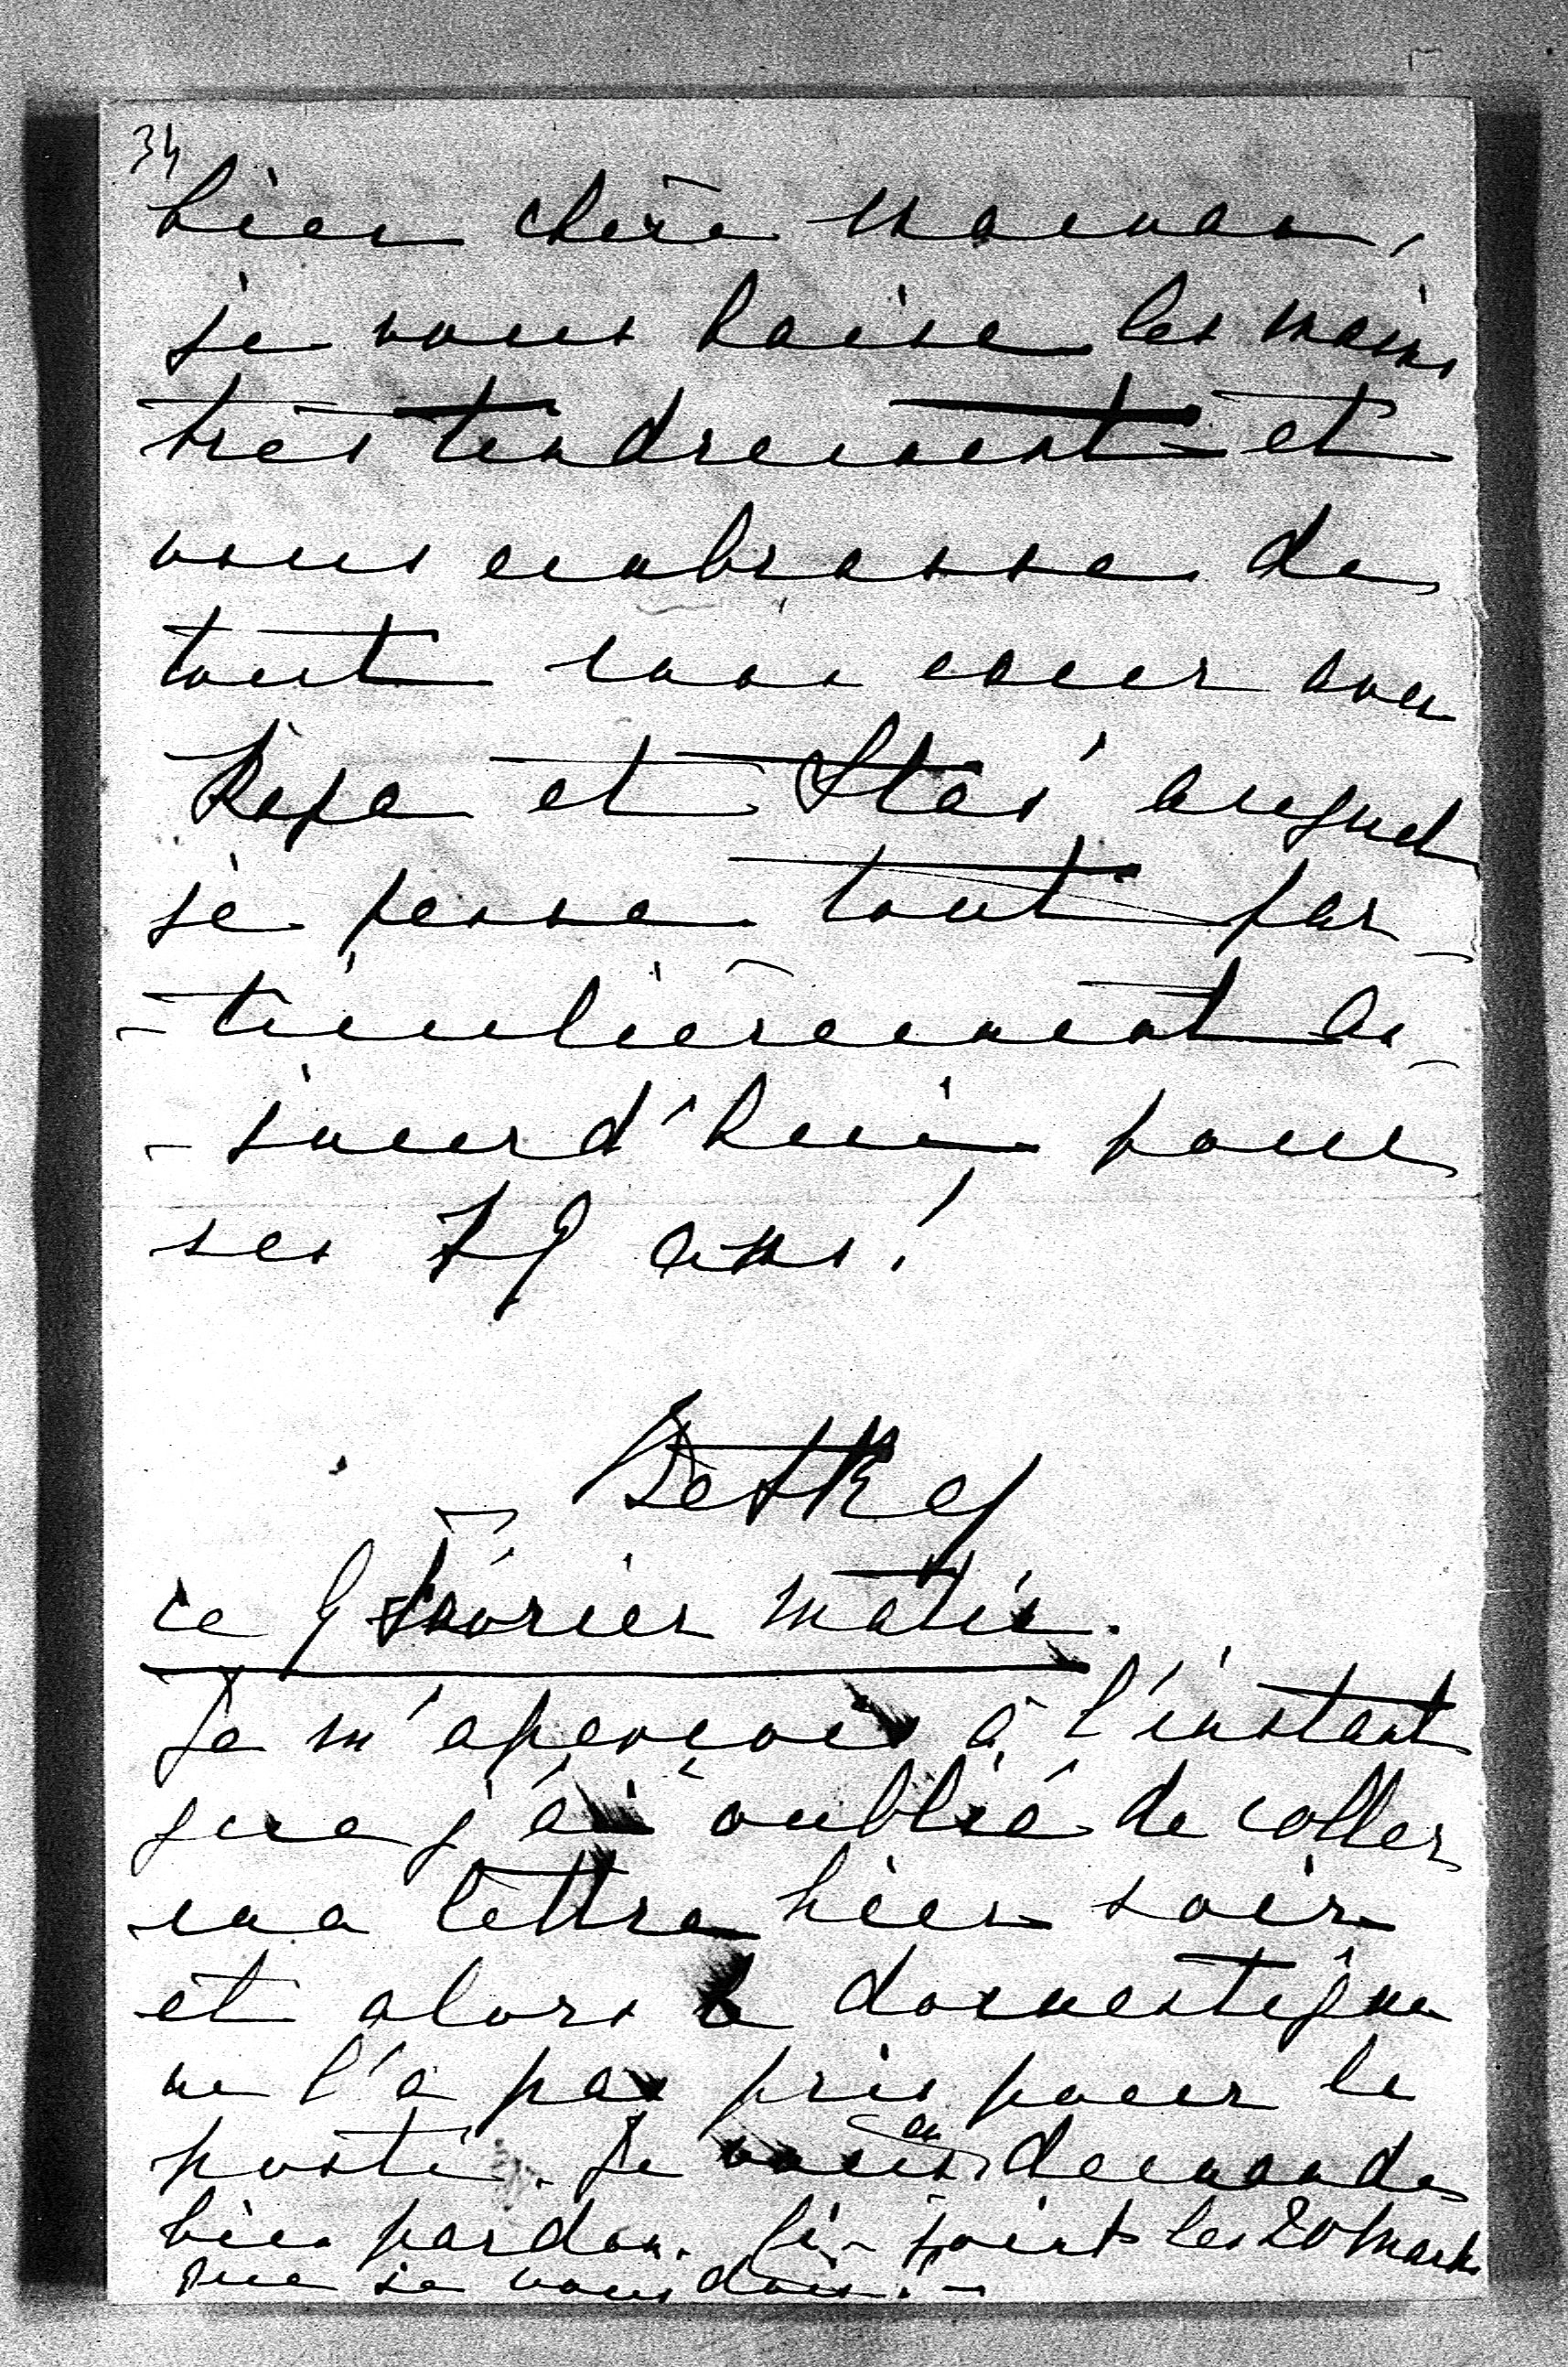 34
bien chère Maman,
je vous baise les mains
très tendrement et
vous embrasse de
tout mon coeur avec
Papa et Stas' auquel
je pense tout par-
-ticulièrement au-
-jourd'hui pour
ses 19 ans!
Betka
ce 9 Février matin.
Je m'aperçois à l'instant
que j'ai oublié de coller
ma lettre hier soir
et alors le domestique
ne l'a pas pris pour la
poste. Je vous en demande
bien pardon. Ci-joint les 20 Mark
que je vous dois.-